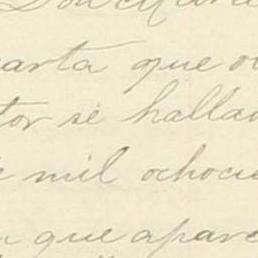 arta que o
tor se hallav
e mil ochocie
a que aparec